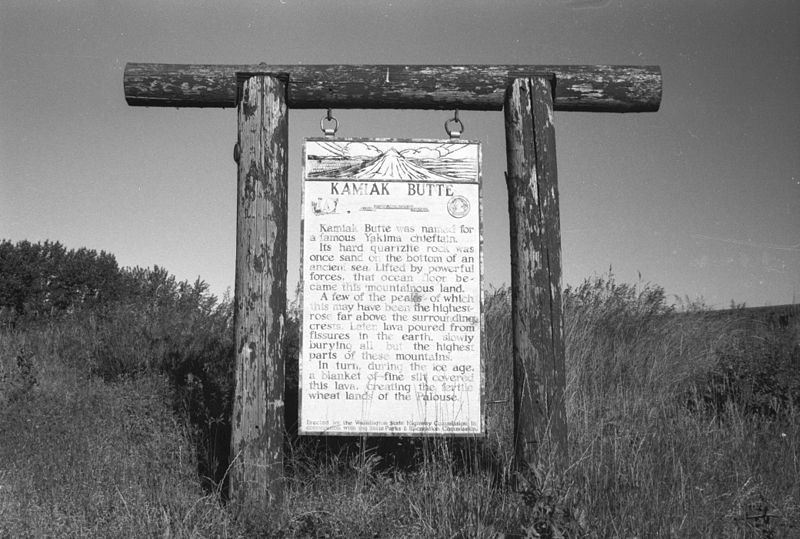 KAMIAK BUTTE
Kamiak Butte was named for
a famous Yakima chieftain.
Its hard quartzite rock was
once sand on the bottom of an
ancient sea. Lifted by powerful
forces, that ocean floor be-
came this mountainous land.
A few of the peaks of which
this may have been the highest
rose far above the surrounding
crests. Later lava poured from
fissures in the earth, slowly
burying all but the highest
parts of these mountains.
In turn, during the ice age,
a blanket of fine silt covered
this lava, creating the fertile
wheat lands of the Palouse.
Erected by the Washington State Highway Commission in
cooperation with the State Parks & Recreation Commission.